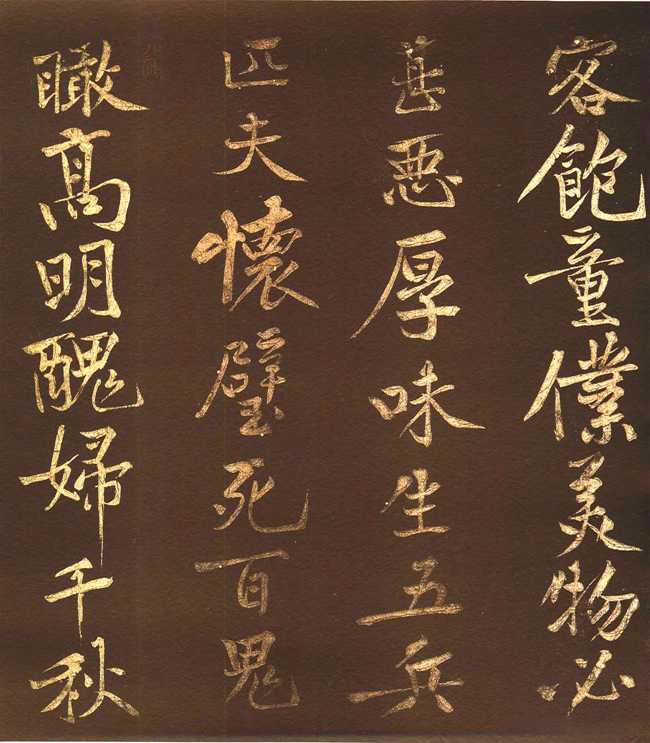 客飽童僕美物必
甚惡厚味生五兵
匹夫懷璧死百鬼
瞰髙明醜婦千秋